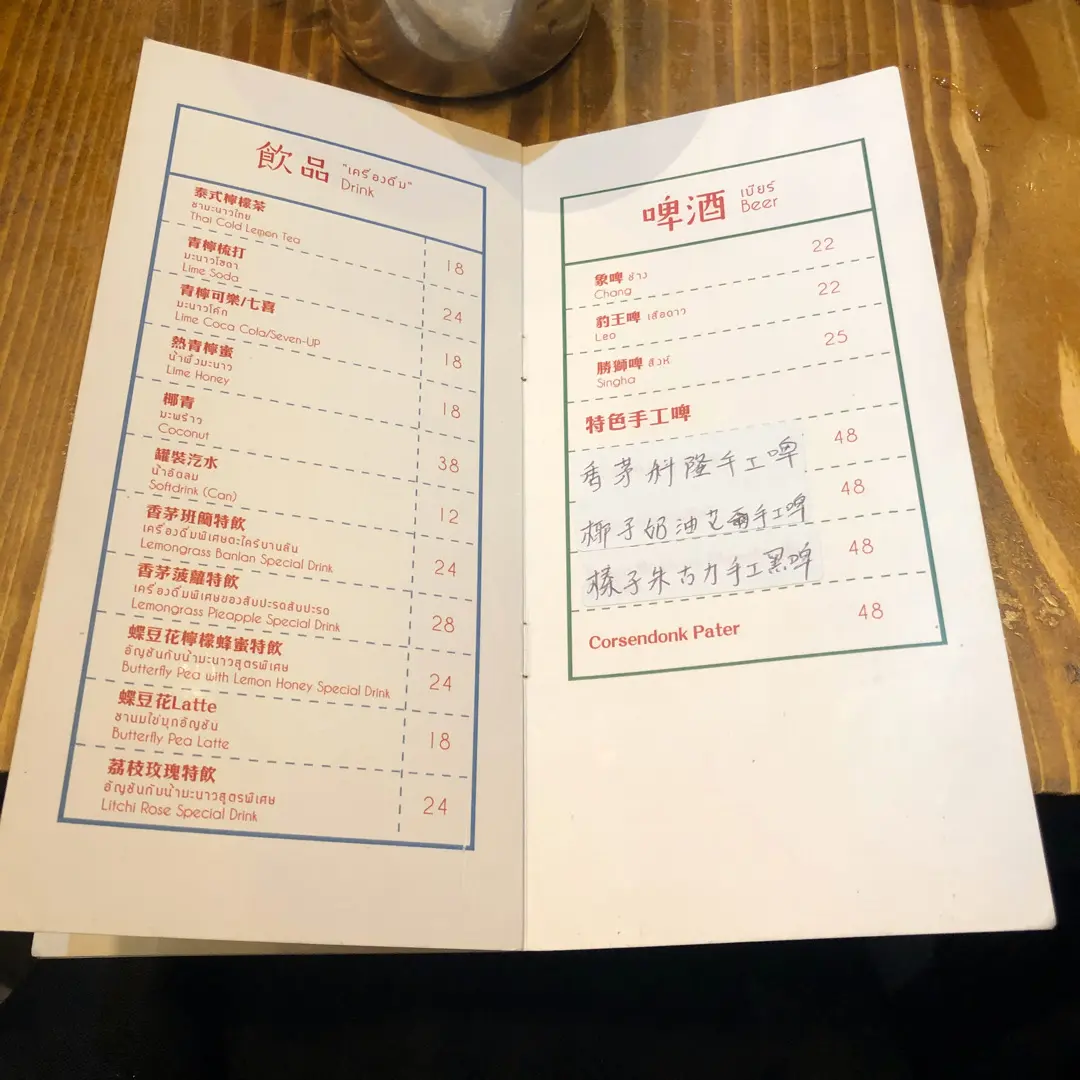 飲品 "เครื่องดื่ม"
Drink
泰式檸檬茶
ชามะนาวไทย
Thai Cold Lemon Tea
18
青檸梳打
มะนาวโซดา
Lime Soda
24
青檸可樂/七喜
มะนาวโค้ก
Lime Coca Cola/Seven-UP
18
熱青檸蜜
น้ำผึ้งมะนาว
Lime Honey
18
椰青
มะพร้าว
Coconut
38
罐裝汽水
น้ำอัดลม
Softdrink (Can)
12
香茅班蘭特飲
เครื่องดื่มพิเศษตะไคร้บานลัน
Lemongrass Banlan Special Drink
24
香茅菠蘿特飲
เครื่องดื่มพิเศษของสับปะรดสับปะรด
Lemongrass Pieapple Special Drink
28
蝶豆花檸檬蜂蜜特飲
อัญชันกับน้ำมะนาวสูตรพิเศษ
Butterfly Pea with Lemon Honey Special Drink
24
蝶豆花Latte
ชานมไข่มุกอัญชัน
Butterfly Pea Latte
18
荔枝玫瑰特飲
อัญชันกับน้ำมะนาวสูตรพิเศษ
Litchi Rose Special Drink
24
啤酒 เบียร์
Beer
象啤 ช้าง
Chang
22
豹王啤 เสือดาว
Leo
22
勝獅啤 สิงห์
Singha
25
特色手工啤
香茅科隆手工啤
48
椰子奶油艾爾手工啤
48
榛子朱古力手工黑啤
48
Corsendonk Pater
48